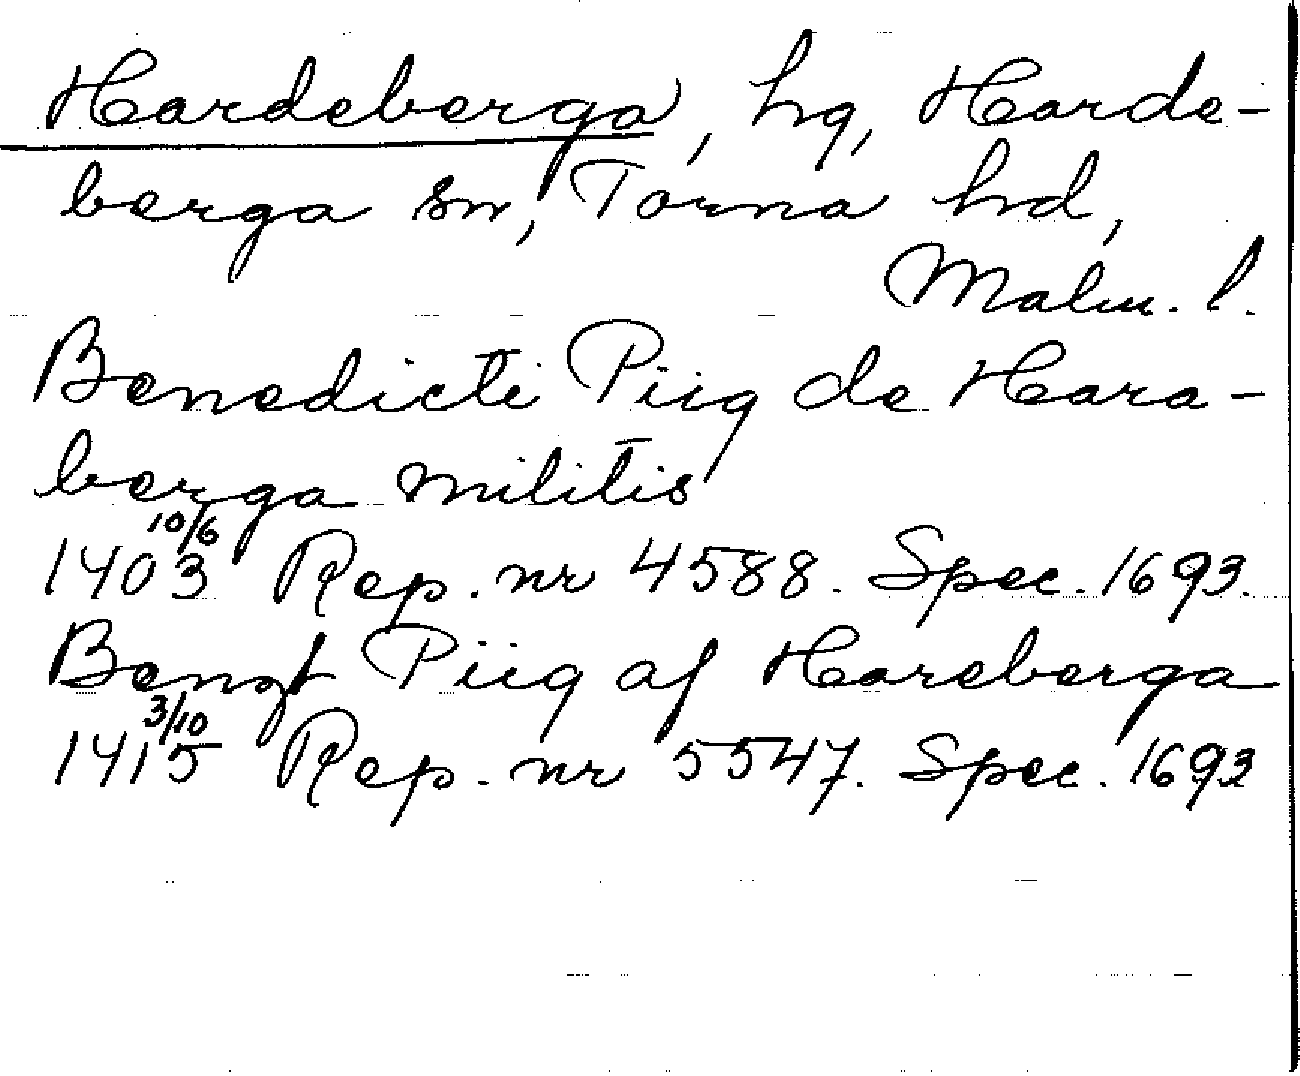 Hardeberga, hg, Harde-
berga sn, Torna hd,
Malm. l.
Benedicti Piig de Hara-
berga militis
10/6
1403 Rep. nr 4588. Spec. 1693.
Bengt Piig af Hareberga
3/10
1415 Rep. nr 5547. Spec. 1693